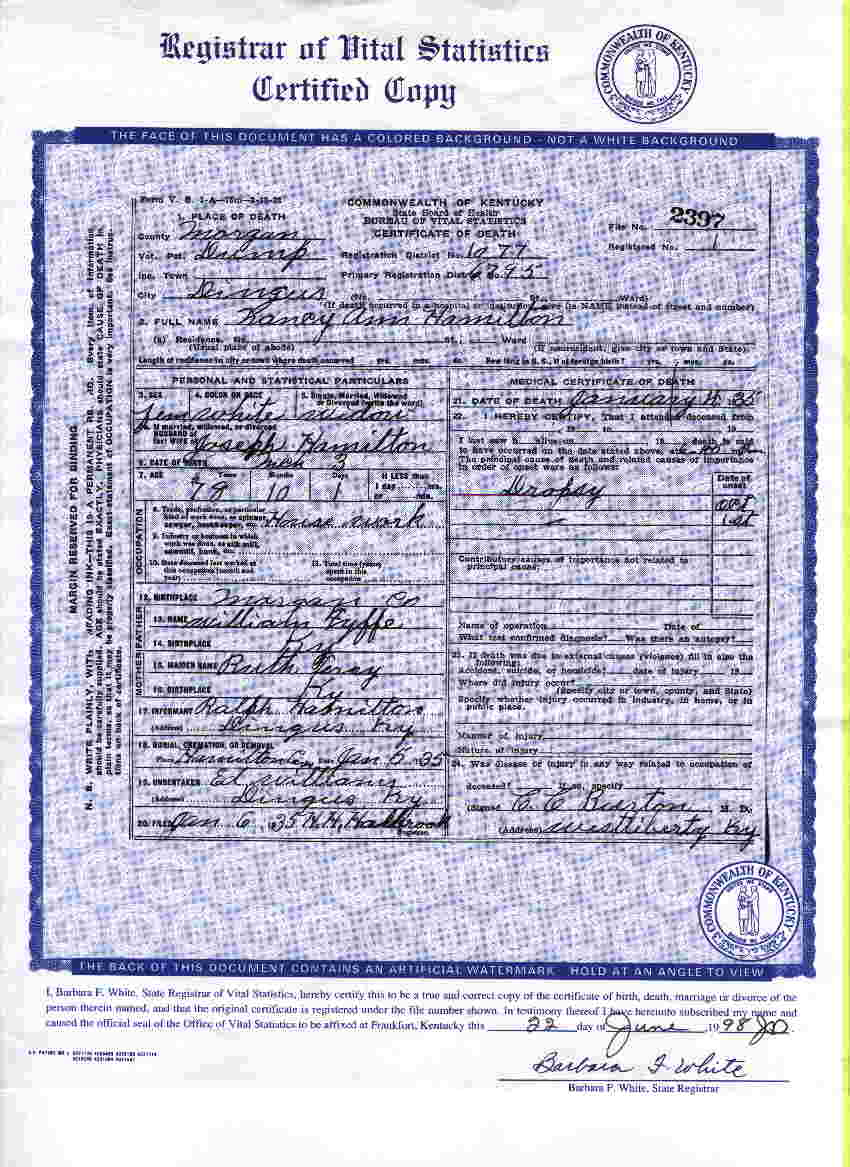 Registrar of Vital Statistics
Certified Copy
THE FACE OF THIS DOCUMENT HAS A COLORED BACKGROUND - NOT A WHITE BACKGROUND
COMMONWEALTH OF KENTUCKY
State Board of Health
BUREAU OF VITAL STATISTICS
CERTIFICATE OF DEATH
File No. 2397
Registered No. 1
1. PLACE OF DEATH
County Morgan
Vot. Pct.
Registration District No. 1077
Inc. Town
Primary Registration District No. 6895
City Dingus (No. St., Ward)
(If death occurred in a hospital or institution, give its NAME instead of street and number)
2. FULL NAME Ann Hamilton
(a) Residence. No. St., Ward
(Usual place of abode) (If nonresident, give city or town and State)
Length of residence in city or town where death occurred yrs. mos. ds. How long in U. S., if of foreign birth? yrs. mos. ds.
PERSONAL AND STATISTICAL PARTICULARS
3. SEX 4. COLOR OR RACE 5. Single, Married, Widowed or Divorced (write the word)
Fem white widow
If married, widowed, or divorced
HUSBAND of
(or) WIFE of Joseph Hamilton
6. DATE OF BIRTH 3
7. AGE Years Months Days If LESS than
79 10 1 1 day hrs.
or min.
8. Trade, profession, or particular kind of work done, as spinner, sawyer, bookkeeper, etc. House work
9. Industry or business in which work was done, as silk mill, sawmill, bank, etc.
10. Date deceased last worked at this occupation (month and year)
11. Total time (years) spent in this occupation
12. BIRTHPLACE Morgan Co
13. NAME William
14. BIRTHPLACE Ky
15. MAIDEN NAME Ruth
16. BIRTHPLACE Ky
17. INFORMANT Ralph Hamilton
(Address) Dingus Ky
18. BURIAL, CREMATION, OR REMOVAL
Place Hamilton Date Jan 35
19. UNDERTAKER Ed Williams
(Address) Dingus Ky
20. FILED Jan 6, 35 H. H. Holbrook
Registrar.
MEDICAL CERTIFICATE OF DEATH
21. DATE OF DEATH January 35
22. I HEREBY CERTIFY, That I attended deceased from
, 19 to , 19
I last saw h alive on 19 , death is said
to have occurred on the date stated above, at m.
The principal cause of death and related causes of importance
in order of onset were as follows:
Date of onset
Dropsy
Oct
1st
Contributory causes of importance not related to
principal cause:
Name of operation Date of
What test confirmed diagnosis? Was there an autopsy?
23. If death was due to external causes (violence) fill in also the
following:
Accident, suicide, or homicide? date of injury 19
Where did injury occur?
(Specify city or town, county, and State)
Specify whether injury occurred in industry, in home, or in
public place.
Manner of injury
Nature of injury
24. Was disease or injury in any way related to occupation of
deceased? If so, specify
(Signed) C. C. Burton M. D.
(Address) West Liberty Ky
OCCUPATION
FATHER
MOTHER
MARGIN RESERVED FOR BINDING
THE BACK OF THIS DOCUMENT CONTAINS AN ARTIFICIAL WATERMARK HOLD AT AN ANGLE TO VIEW
I, Barbara F. White, State Registrar of Vital Statistics, hereby certify this to be a true and correct copy of the certificate of birth, death, marriage or divorce of the
person therein named, and that the original certificate is registered under the file number shown. In testimony thereof I have hereunto subscribed my name and
caused the official seal of the Office of Vital Statistics to be affixed at Frankfort, Kentucky this 22 day of June, 1998
Barbara F. White
Barbara F. White, State Registrar